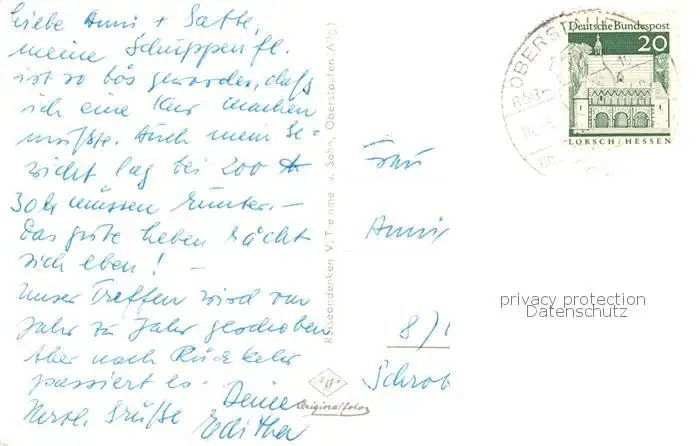 Liebe Anni + Gatte,
meine Schuppenfl.
ist so bös geworden, daß
ich eine Kur machen
mußte. Auch mein Ge=
wicht lag bei 200 ℔
30 ℔ müssen runter. —
Das gute Leben rächt
sich eben! —
Unser Treffen wird von
Jahr zu Jahr geschoben
Aber nach Rückkehr
passiert es. Deine
Herzl. Grüße Editha
Reiseandenken V. Tienme u. Sohn, Oberstaufen (Allg.)
Originalfotos
OBERSTAUF
Deutsche Bundespost
20
LORSCH/HESSEN
Frau
Anni
8/
Schrob
privacy protection
Datenschutz